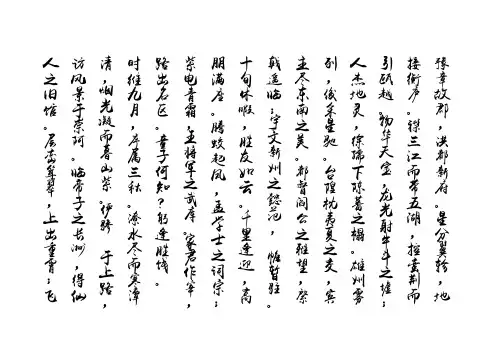 豫章故郡,洪都新府。星分翼轸,地
接衡庐。襟三江而带五湖,控蛮荆而
引瓯越。物华天宝,龙光射牛斗之墟;
人杰地灵,徐孺下陈蕃之榻。雄州雾
列,俊采星驰。台隍枕夷夏之交,宾
主尽东南之美。都督阎公之雅望,棨
戟遥临;宇文新州之懿范, 帷暂驻。
十旬休暇,胜友如云。千里逢迎,高
朋满座。腾蛟起凤,孟学士之词宗;
紫电青霜,王将军之武库。家君作宰,
路出名区。童子何知?躬逢胜饯。
时维九月,序属三秋。潦水尽而寒潭
清,烟光凝而暮山紫。俨骖 于上路,
访风景于崇阿。临帝子之长洲,得仙
人之旧馆。层峦耸翠,上出重霄;飞